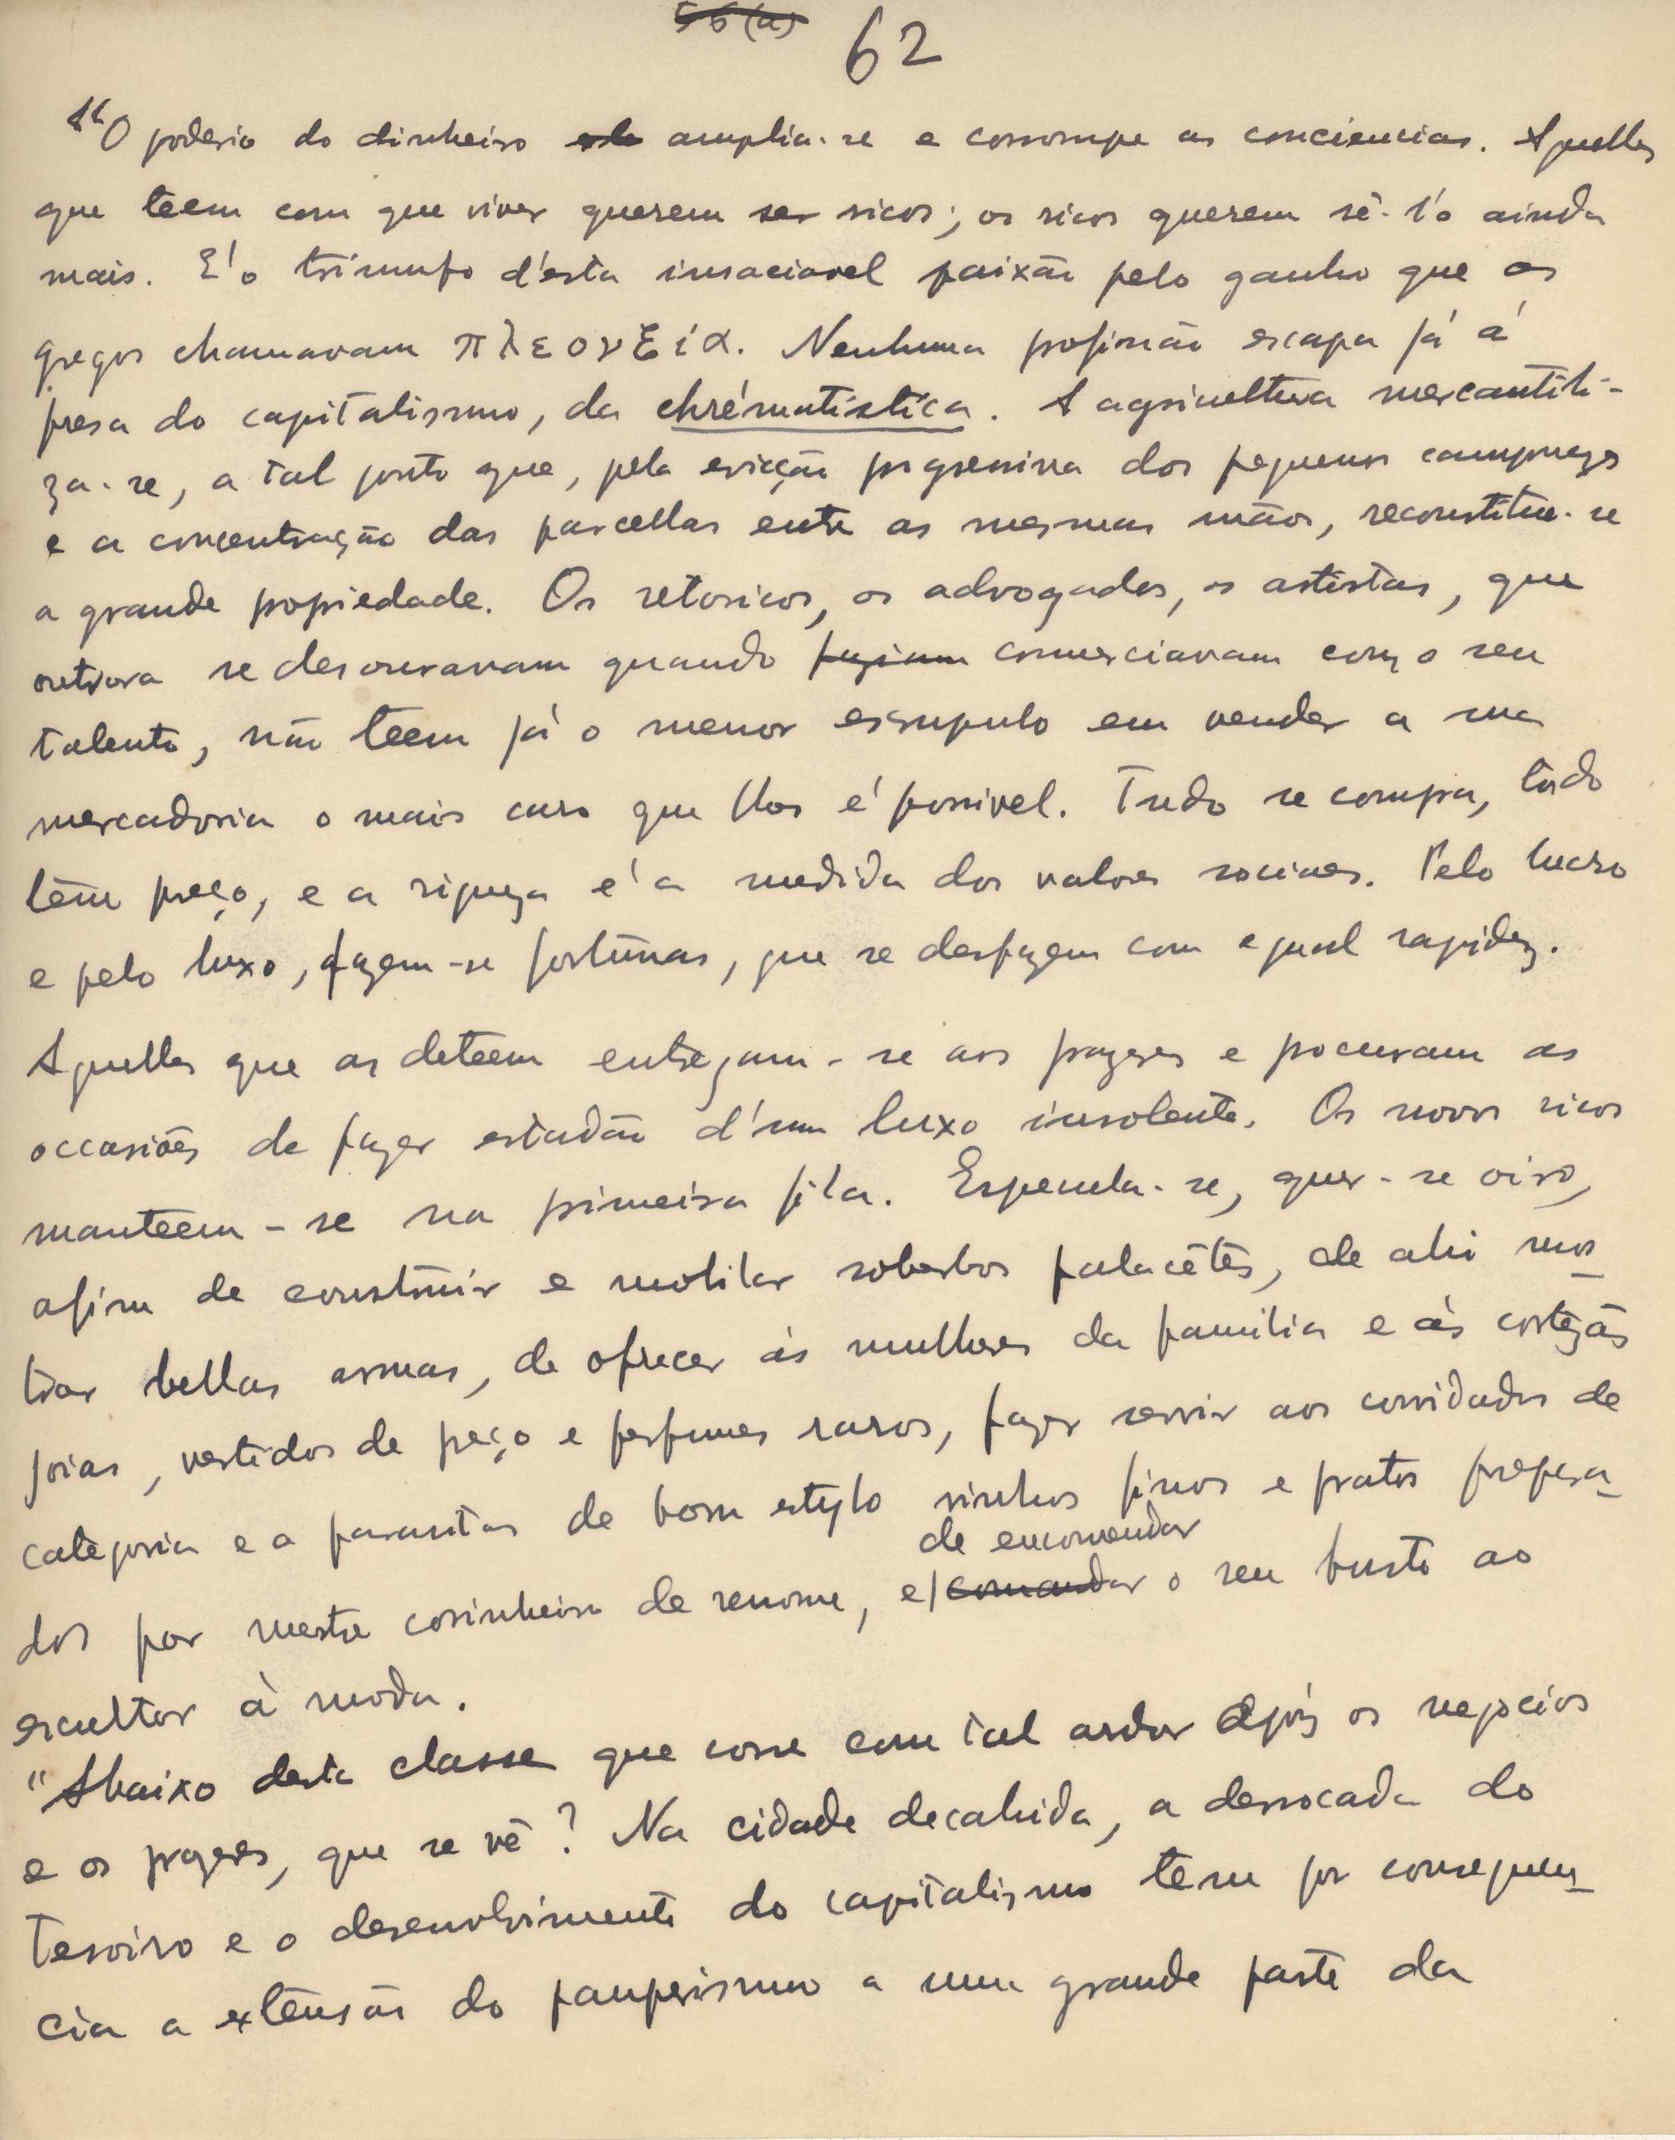 56(a) 62
"O poderio do dinheiro amplia-se e corrompe as conciencias. Aquelles
que teem com que viver querem ser ricos; os ricos querem sê-l'o ainda
mais. E' o triumfo d'esta insaciavel paixão pelo ganho que os
gregos chamavam πλεονεξία. Nenhuma profissão escapa já á
presa do capitalismo, da chrématistica. A agricultura mercantili-
za-se, a tal ponto que, pela evicção progressiva dos pequenos camponezes
e a concentração das parcellas entre as mesmas mãos, reconstitue-se
a grande propriedade. Os retoricos, os advogados, os artistas, que
outrora se desouravam quando faziam comerciavam com o seu
talento, não teem já o menor escrupulo em vender a sua
mercadoria o mais caro que lhes é possivel. Tudo se compra, tudo
têm preço, e a riqueza é a medida dos valores sociaes. Pelo lucro
e pelo luxo, fazem-se fortunas, que se desfazem com egual rapidez.
Aquelles que as deteem entregam-se aos prazeres e procuram as
occasiões de fazer estadão d'um luxo insolente. Os novos ricos
manteem-se na primeira fila. Especula-se, quer-se oiro,
afim de construir e mobilar soberbos palacêtes, de ahi mos-
trar bellas armas, de ofrecer ás mulheres da familia e ás cortezãs
joias, vestidos de preço e perfumes raros, fazer servir aos convidados de
categoria e a parasitas de bom estylo vinhos finos e pratos prepara-
de encomendar
dos por mestre cosinheiro de renome, e comandar o seu busto ao
escultor à moda.
"Abaixo desta classe que corre com tal ardor após os negocios
e os prazeres, que se vê? Na cidade decahida, a derrocada do
tesoiro e o desenvolvimento do capitalismo tem por consequen-
cia a extensão do pauperismo a uma grande parte da